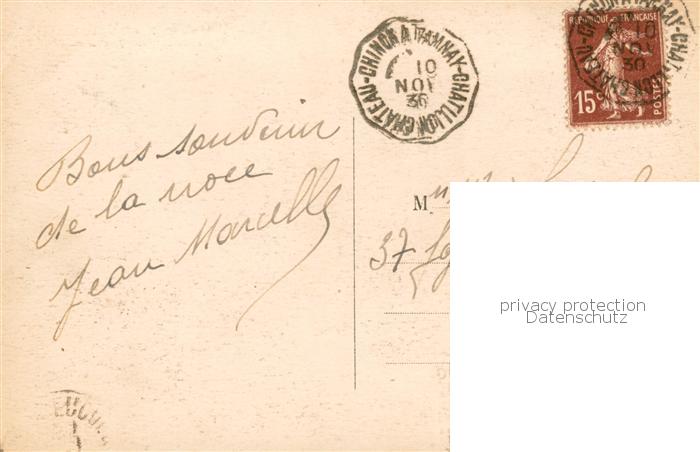 CHATEAU-CHINON A TAMNAY-CHATILLON
10
NOV
30
REPUBLIQUE FRANÇAISE
15c
POSTES
10
NOV
30
Bons souvenirs
de la noce
Jean Marcelle
M
37
privacy protection
Datenschutz